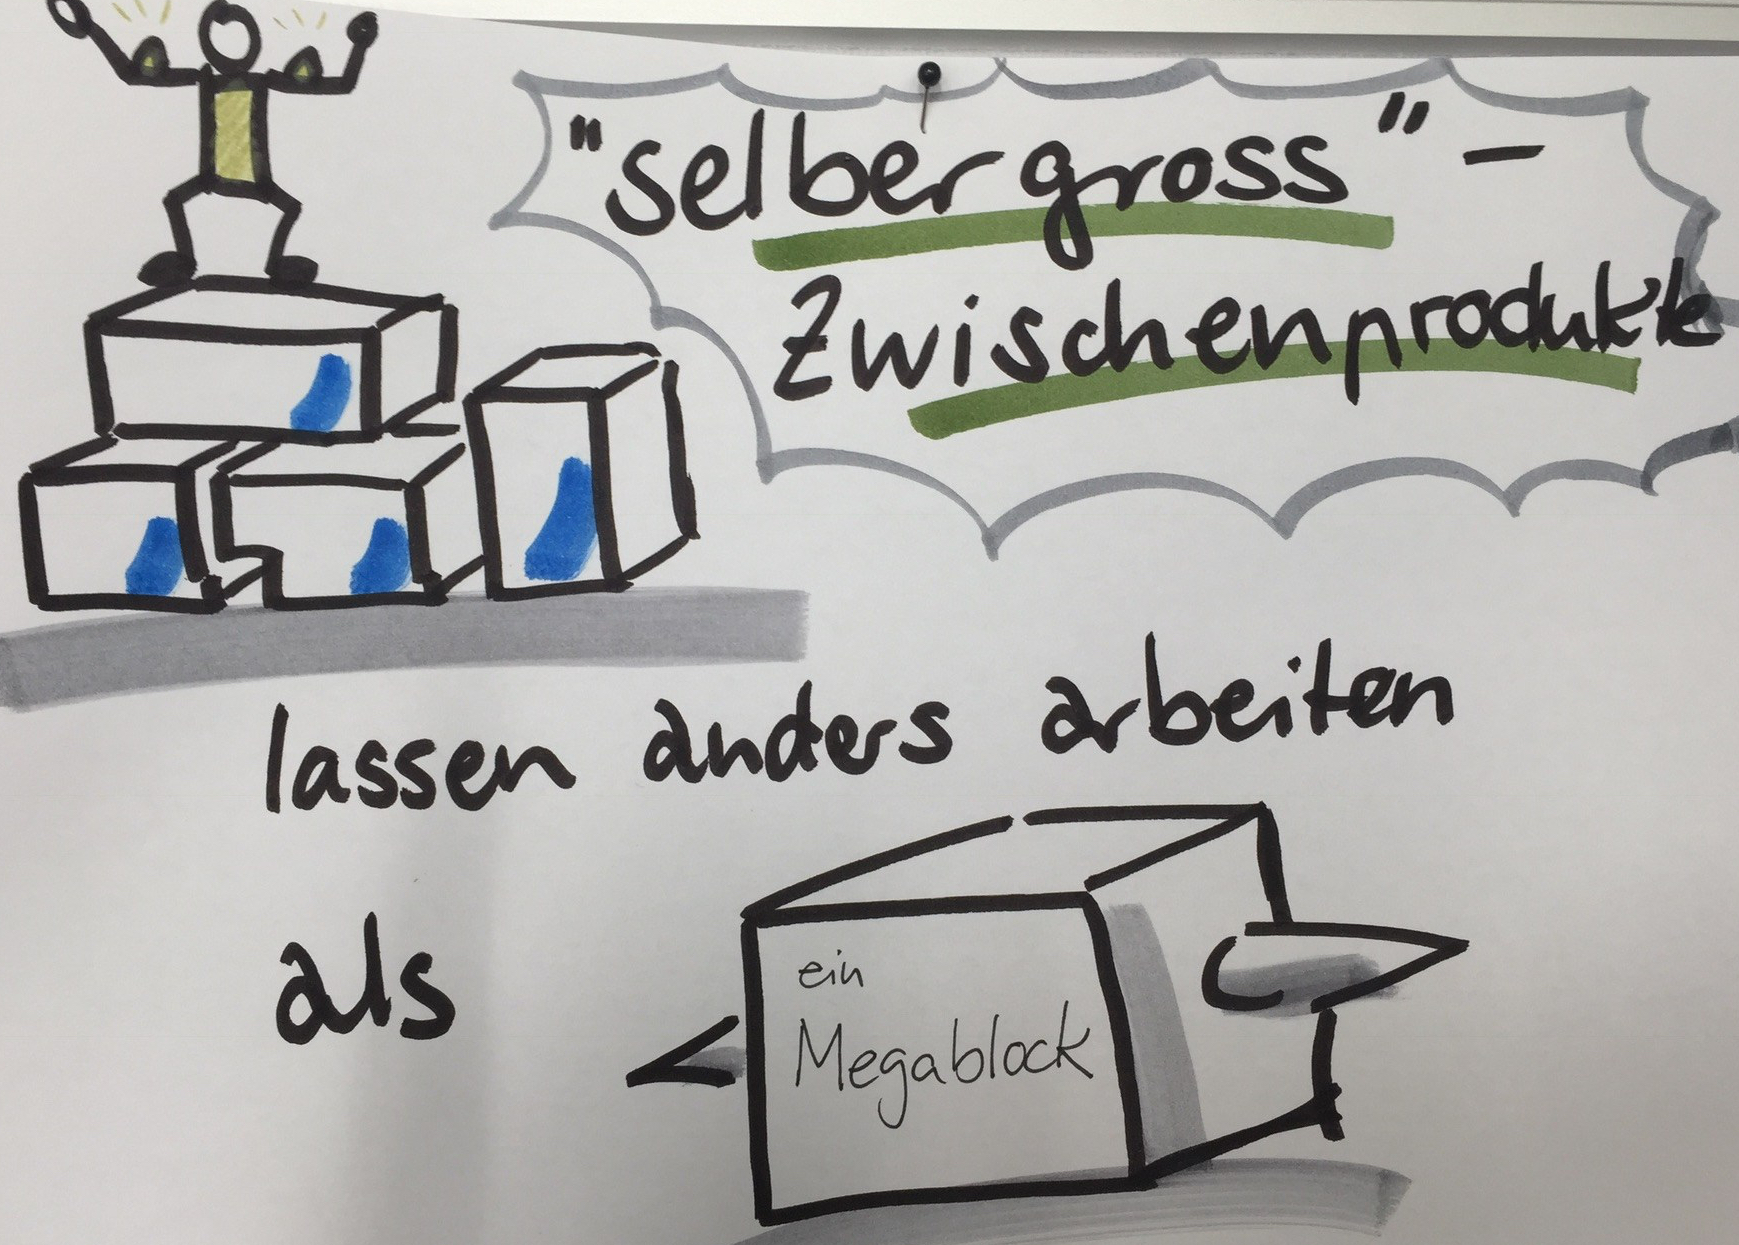 "selbergross" –
Zwischenprodukte
lassen anders arbeiten
als
ein
Megablock